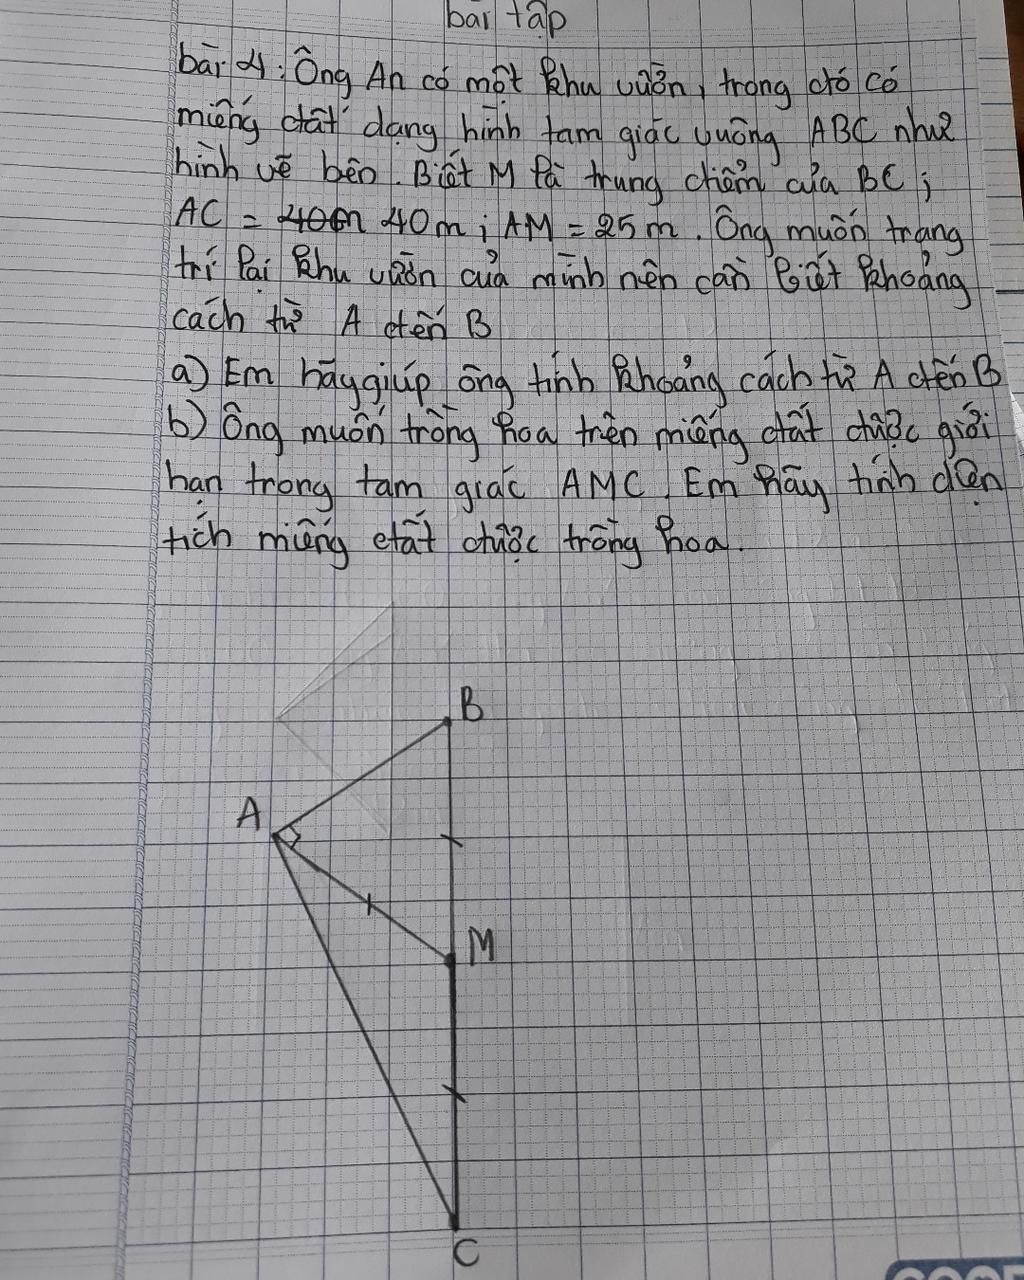 bài tập
bài 4: Ông An có một khu vườn, trong đó có
miếng đất dạng hình tam giác vuông ABC như
hình vẽ bên. Biết M là trung điểm của BC;
AC = 40m; AM = 25m. Ông muốn trang
trí lại khu vườn của mình nên cần biết khoảng
cách từ A đến B
a) Em hãy giúp ông tính khoảng cách từ A đến B
b) Ông muốn trồng hoa trên miếng đất được giới
hạn trong tam giác AMC. Em hãy tính diện
tích miếng đất được trồng hoa.
B
A
M
C